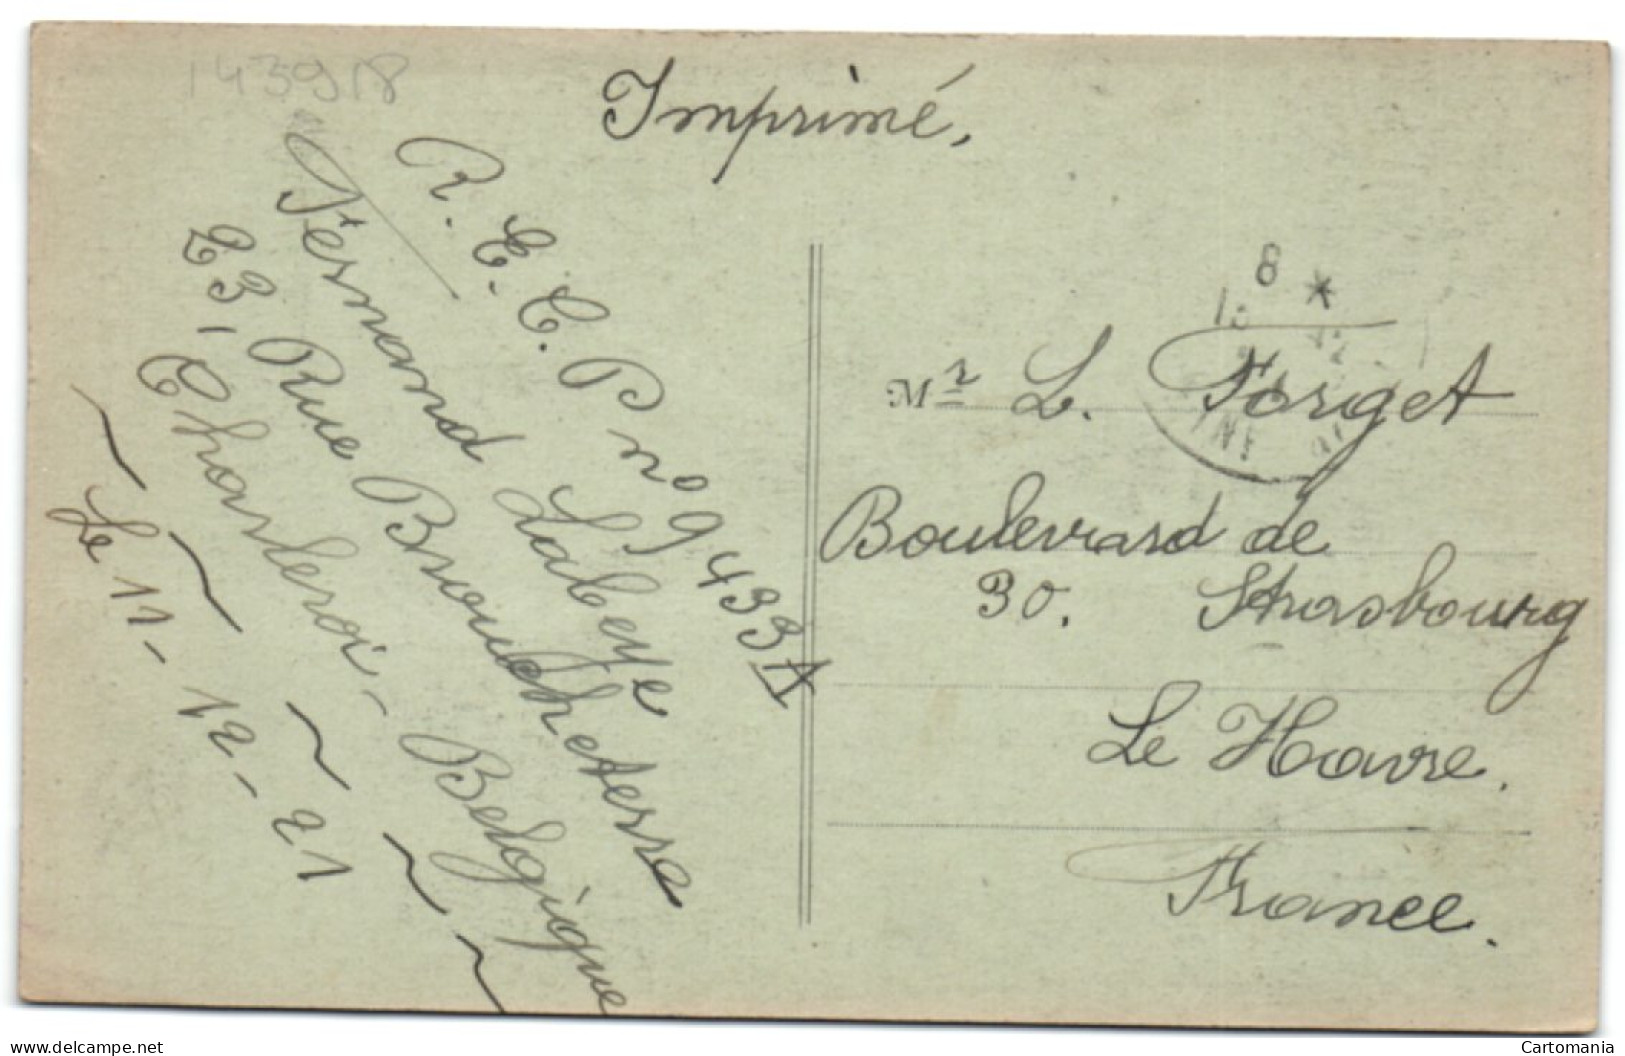 143918
Imprimé.
R. E. C. P n° 9433 A
Fernand Labeye
23, Rue Broucheterre
Charleroi - Belgique
Le 11 - 12 - 21
8 *
Mr L. Forget
Boulevard de
30. Strasbourg
Le Havre.
France.
www.delcampe.net
Cartomania